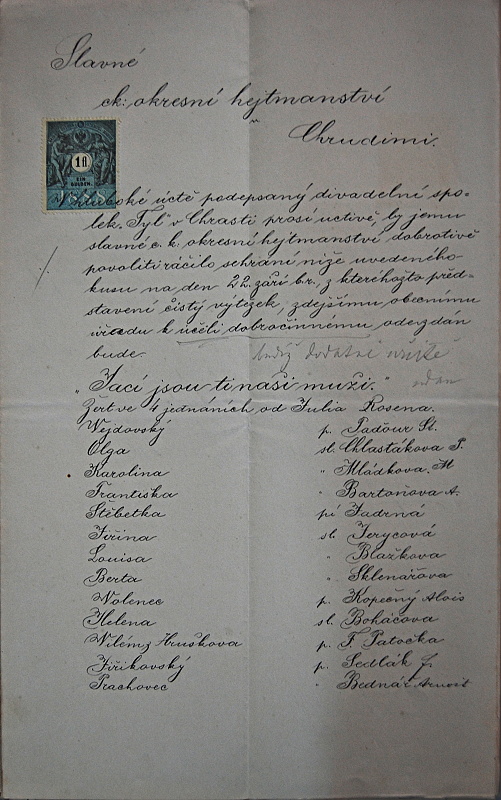 Slavné
ck: okresní hejtmanství
v
Chrudimi.
1 fl
EIN GULDEN.
V hluboké úctě podepsaný divadelní spo-
lek "Tyl" v Chrasti prosí uctivě, by jemu
slavné c. k. okresní hejtmanství dobrotivě
povoliti ráčilo sehrání níže uvedeného
kusu na den 22. září br., z kteréhožto před-
stavení čistý výtěžek zdejšímu obecnímu
úřadu k účeli dobročinnému odevzdán
bude.
budiž dodatně
"Jací jsou ti naši muži."
Žert ve 4 jednáních od Julia Rosena.
Vejdovský p. Paďour St.
Olga sl. Chlastákova P.
Karolina " Mládkova. M
Františka " Bartoňova A.
Štěbetka pí Jadrná
Jiřina sl. Jerycová
Louisa " Blažkova
Berta " Sklenářova
Volenec p. Kopečný Alois
Helena sl. Boháčova
Vilém z Hruškova p. F. Patočka
Jiřikovský p. Sedlák J.
Prachovec " Bednář Arnošt